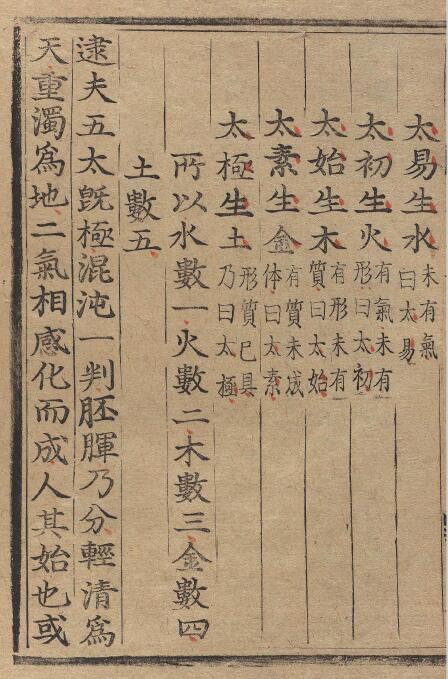 太易生水未有氣曰太易
太初生火有氣未有形曰太初
太始生木有形未有質曰太始
太素生金有質未成体曰太素
太極生土形質已具乃曰太極
所以水數一火數二木數三金數四
土數五
逮夫五太既極混沌一判胚腪乃分輕清爲
天重濁爲地二氣相感化而成人其始也或